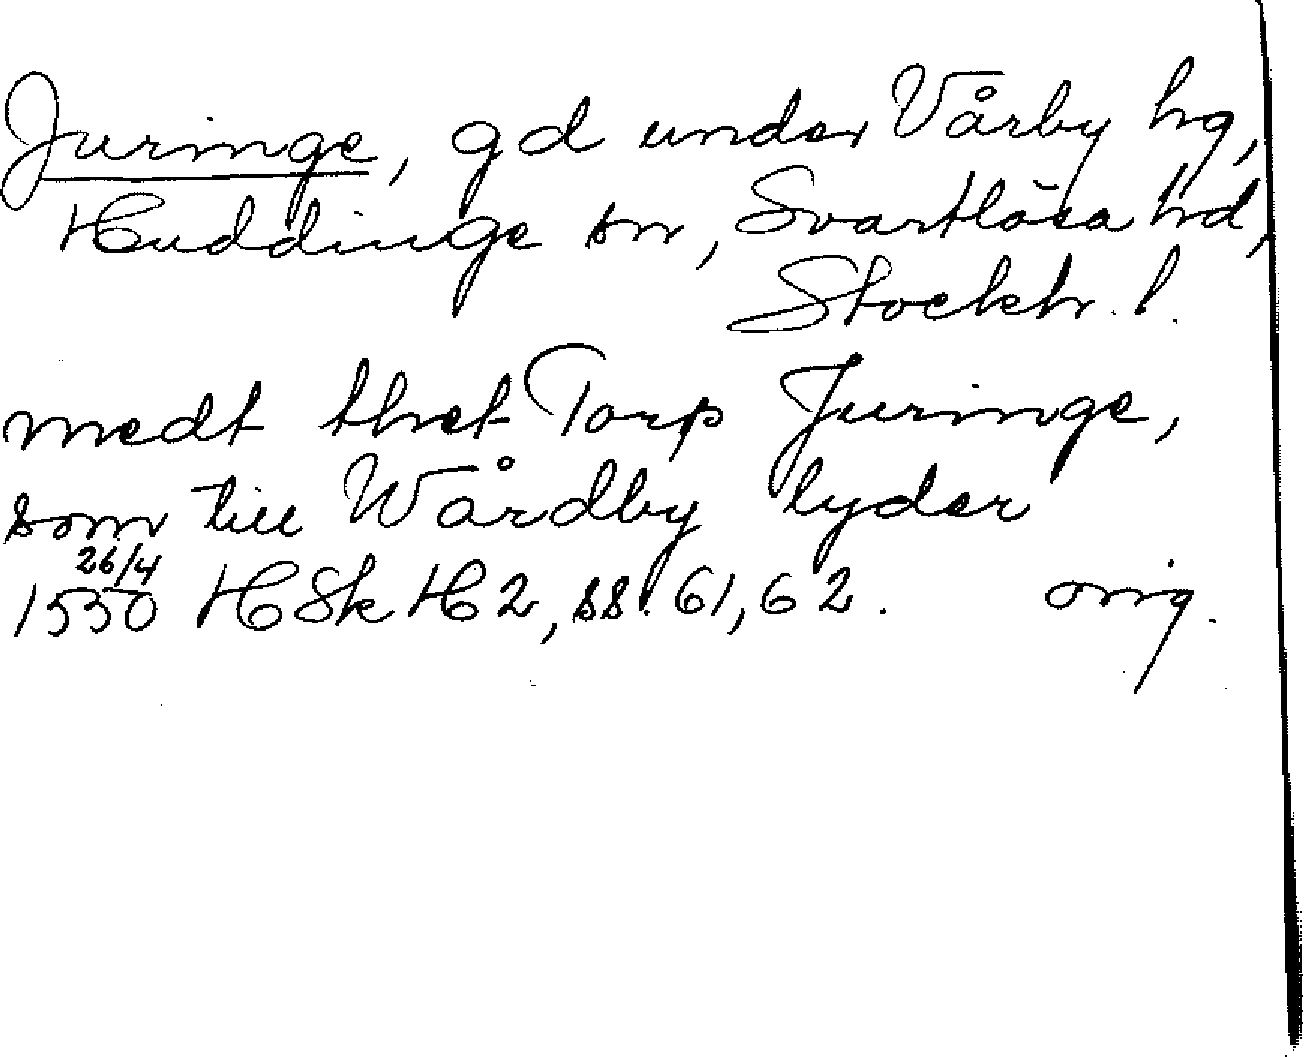 Juringe, gd under Vårby hg,
Huddinge sn, Svartlösa hd,
Stockh. l.
medt thet Torp Juringe,
som till Wårdby lyder
26/4
1550 HSk H2, ss. 61, 62. orig.